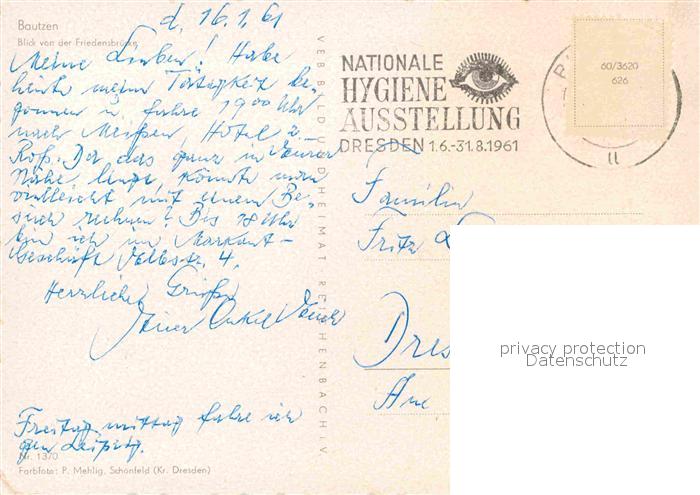 Bautzen
Blick von der Friedensbrücke
d. 16.1.61
Meine Lieben! Habe
heute meine Tätigkeit be-
gonnen u. fahre 19 00 Uhr
nach Meißen, Hotel z.
Roß. Da das ganz in Eurer
Nähe liegt, könnte man
vielleicht mit einem Be-
such rechnen? Bis 18 Uhr
bin ich im
Geschäft 4.
Herzliche Grüße
Onkel
Freitag mittag fahre ich
gen Leipzig.
Nr. 1370
Farbfoto: P. Mehlig, Schönfeld (Kr. Dresden)
VEB BILD UND HEIMAT REICHENBACH i. V.
NATIONALE
HYGIENE
AUSSTELLUNG
DRESDEN 1.6.-31.8.1961
60/3620
626
II
Familie
Fritz
Dres
Am
privacy protection
Datenschutz